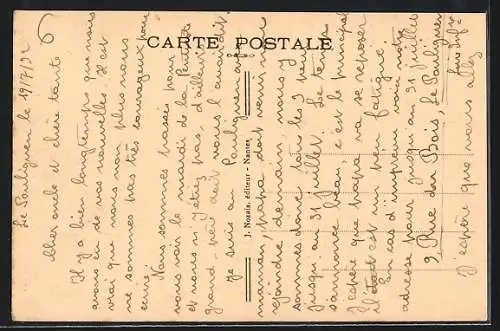 CARTE POSTALE
J. Nozais, éditeur - Nantes
Le Pouliguen le 19/7/32
Cher oncle et chère tante
Il y a bien longtemps que nous
avons eu de vos nouvelles. Il est
vrai que nous non plus nous
ne sommes pas très courageux pour
écrire.
Nous sommes passés pour
vous voir le mardi de la Pentecôte
et vous n'y étiez pas, d'ailleurs
grand-père doit vous l'avoir dit
Je suis au Pouliguen avec
maman, papa doit venir nous
rejoindre, demain, nous y
sommes donc tous les 3 pour
jusqu'au 31 juillet. Le temps
s'annonce beau, c'est le principal
J'espère que papa va se reposer
il était un peu fatigué
En cas d'imprévu voici notre
adresse pour jusqu'au 31 juillet
9 Rue du Bois, Le Pouliguen
Loire Infre
J'espère que vous allez